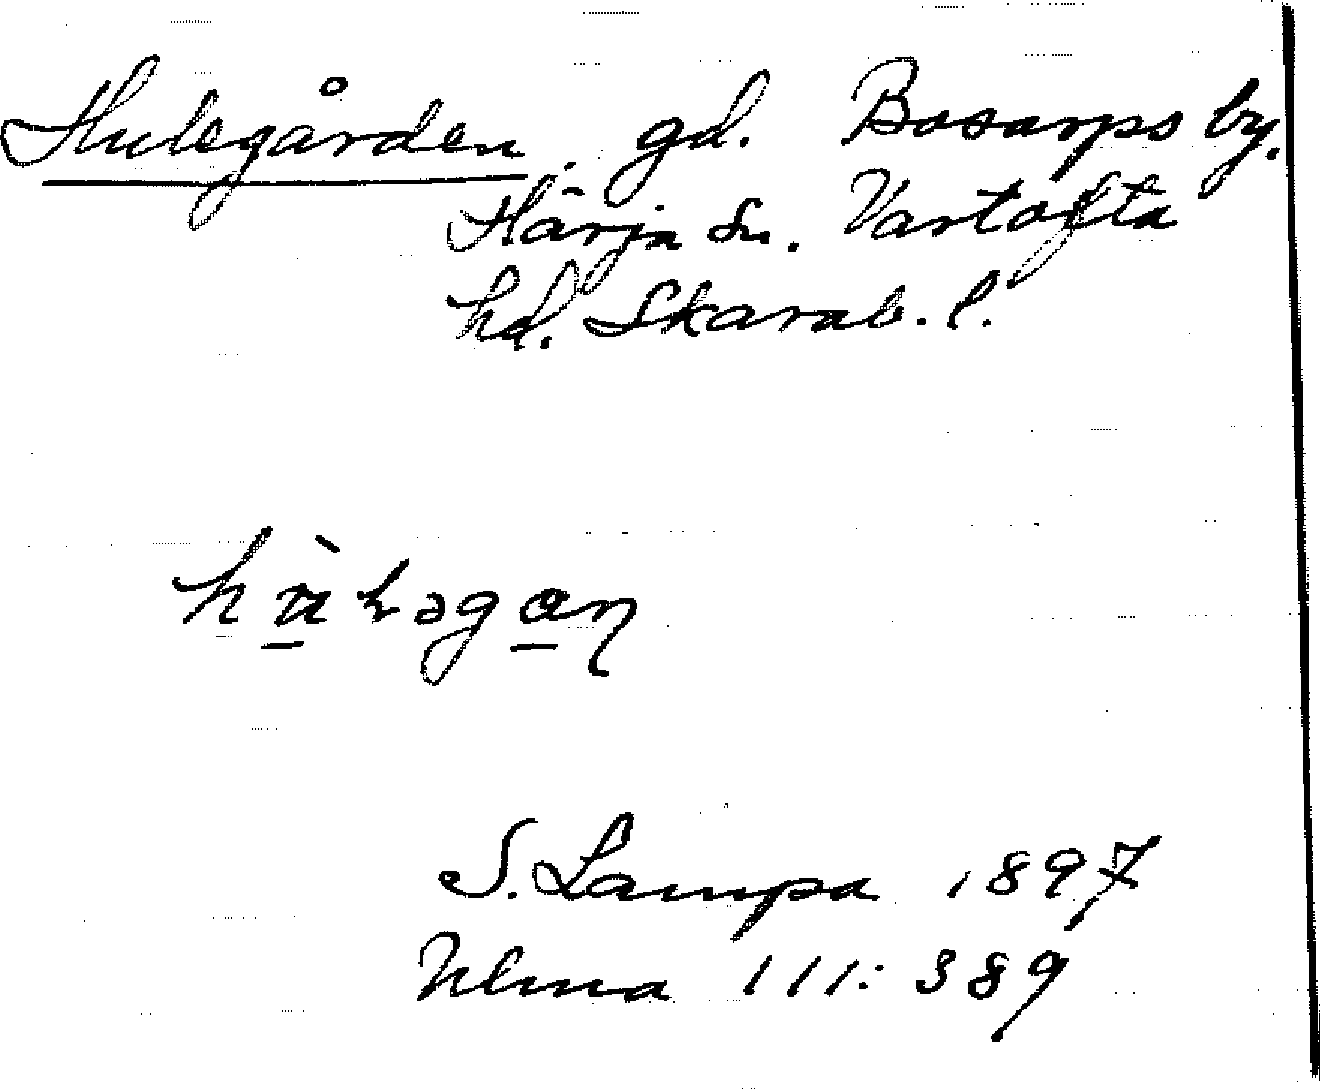 Hulegården. gd. Bosarps by.
Härja sn. Vartofta
hd. Skarab. l.
S. Lampa 1897
Ulma 111: 389